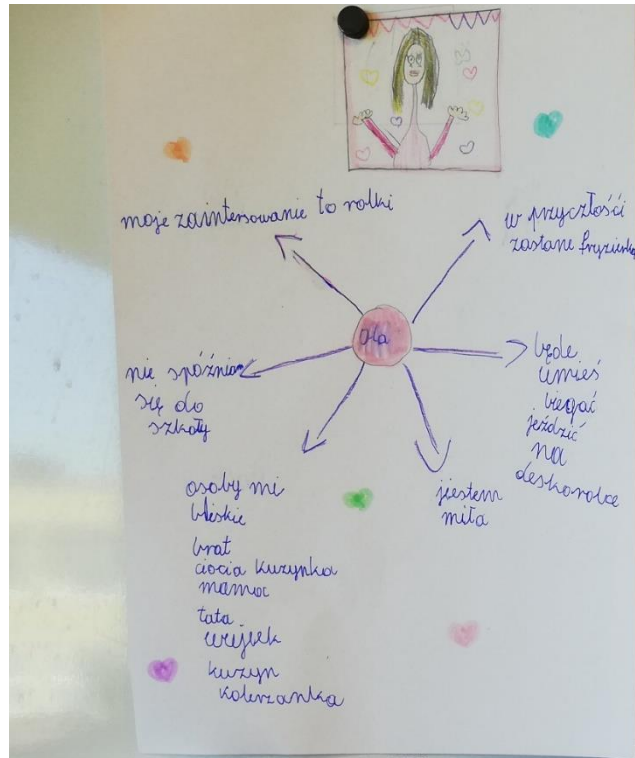 moje zaintersowanie to rolki
w przyczłości
zastane fryzierką
Ola
nie spóźniam
się do
szkoły
będe
umieś
biegać
jeździć
na
deskorolce
osoby mi
bliskie
brat
ciocia kuzynka
mama
tata
wujek
kuzyn
kolerzanka
jestem
miła